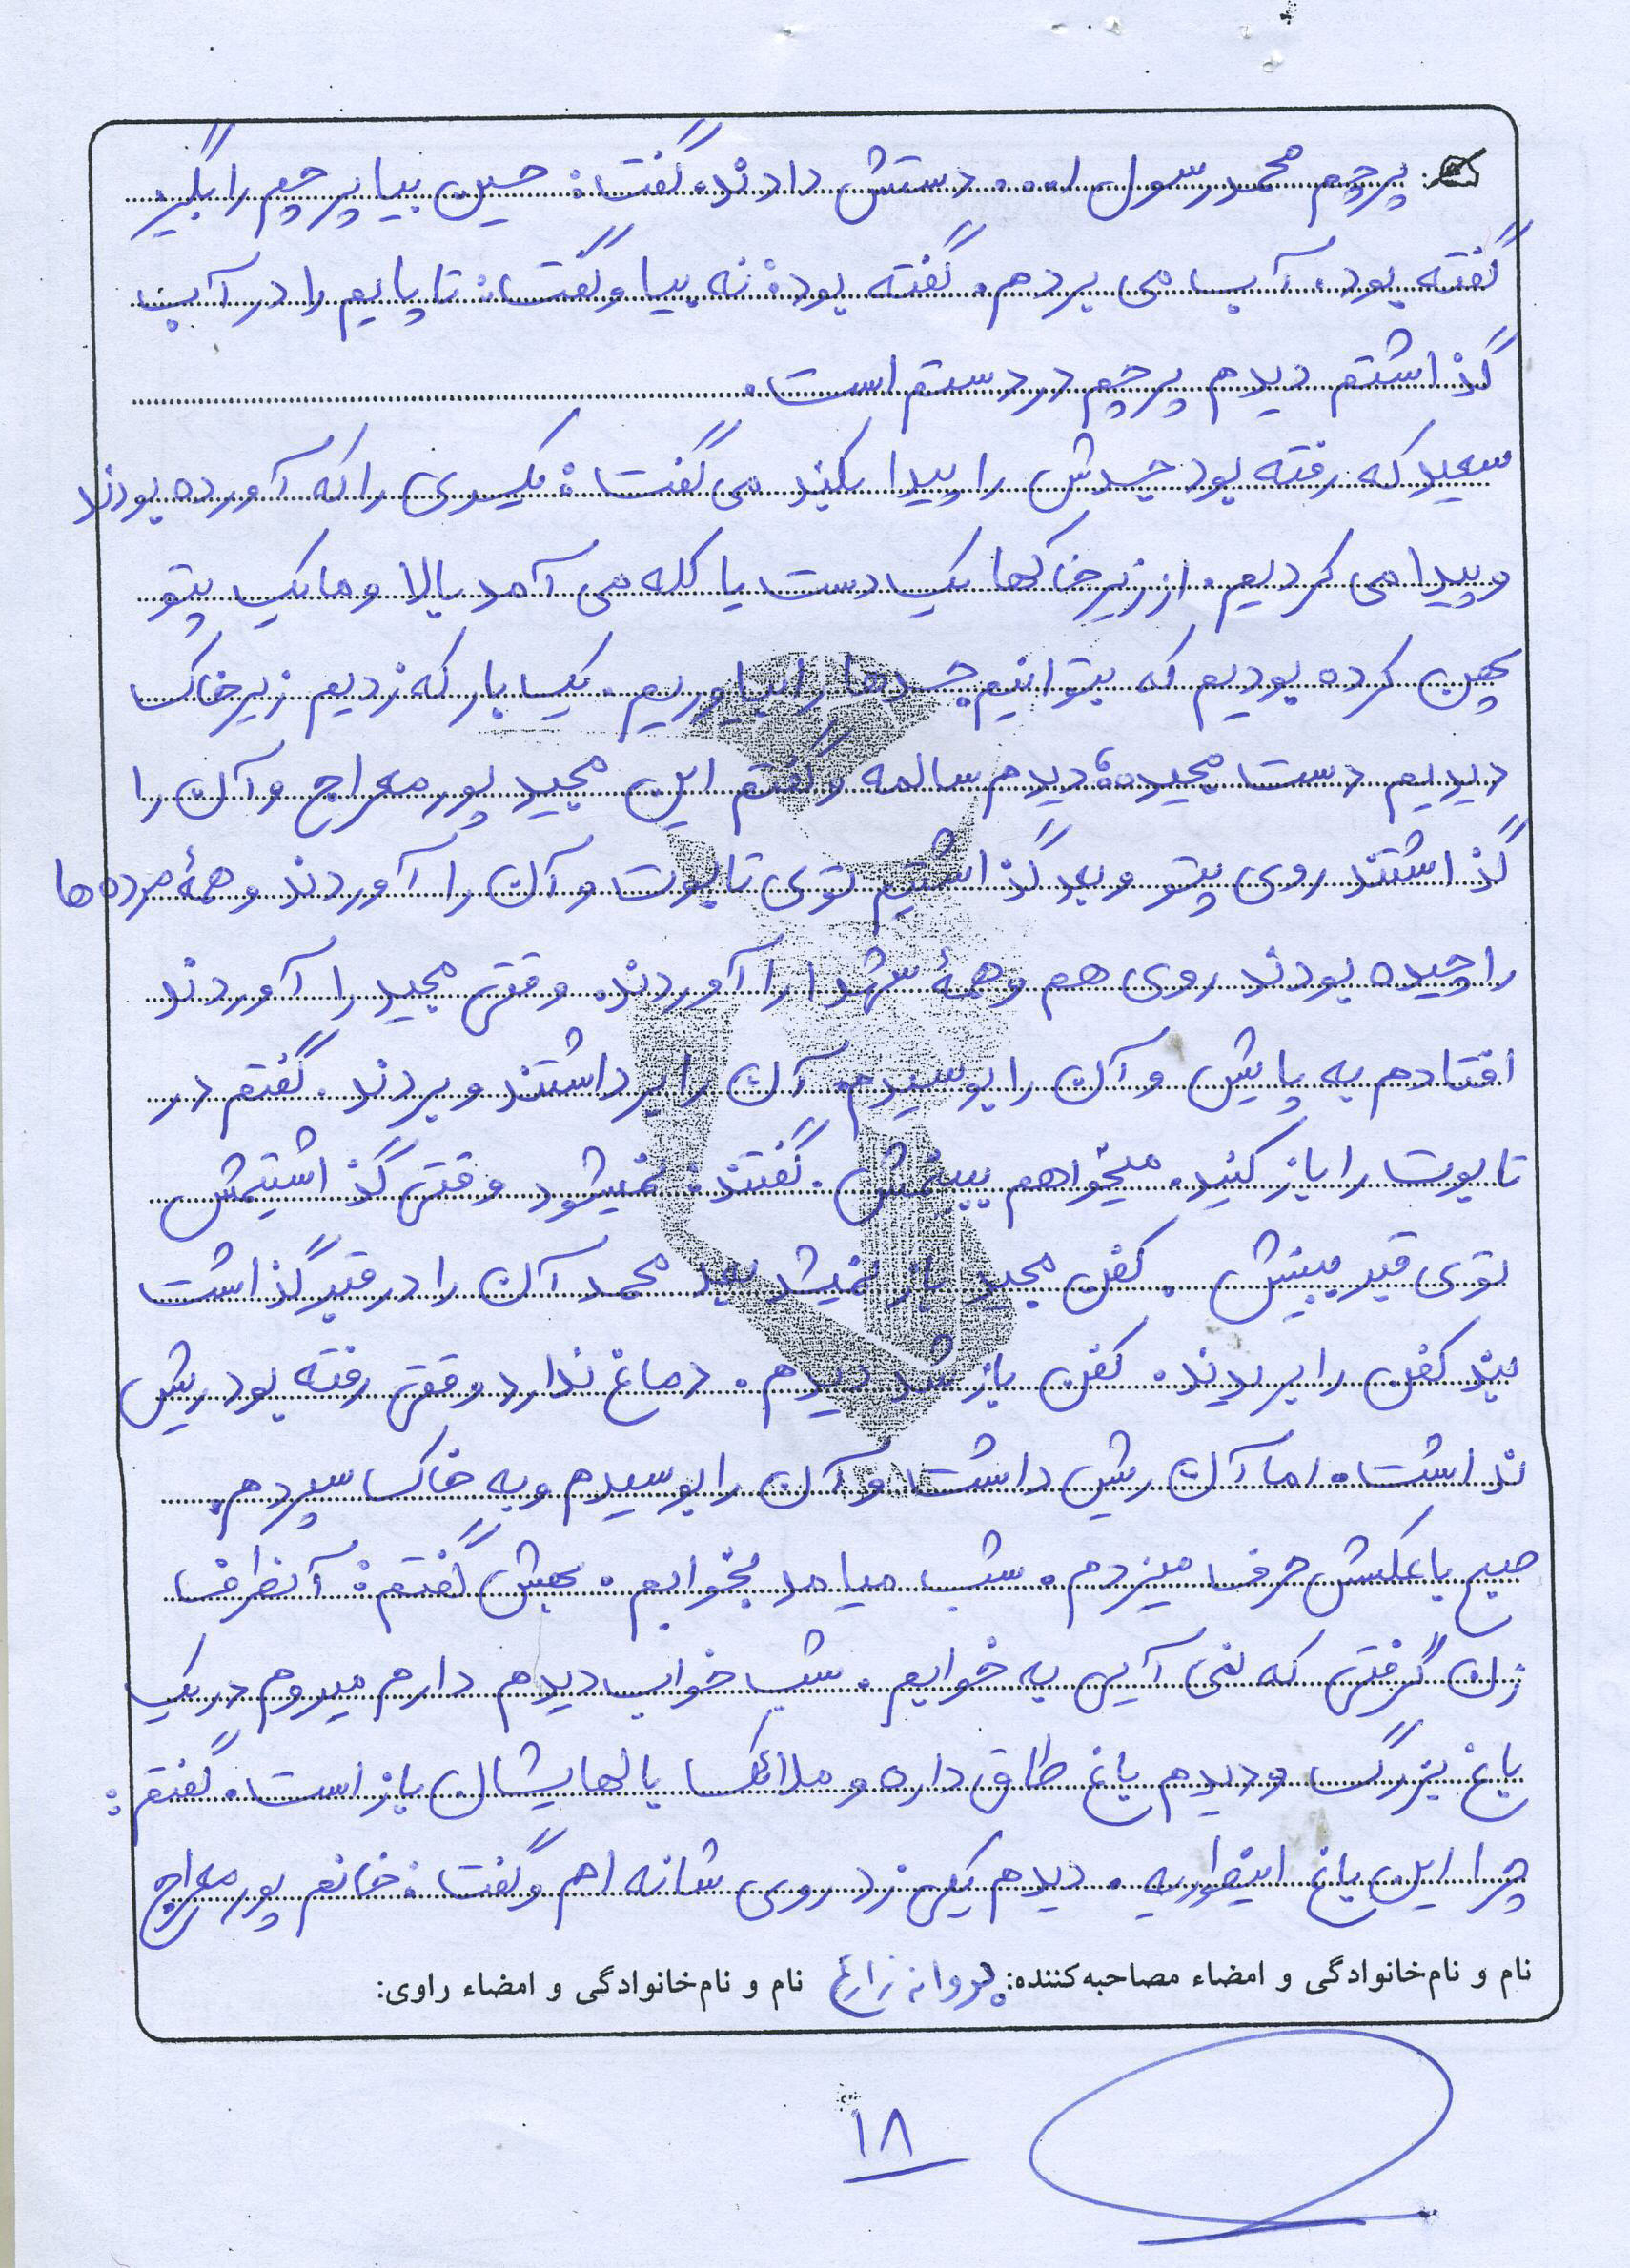 پرچم محمد رسول ا... دستش دادند. گفت: حسین بیا پرچم را بگیر
گفته بود. آب می بردم. گفته بود: نه بیا و گفت: تا پایم را در آب
گذاشتم دیدم پرچم در دستم است.
سعید که رفته بود جسدش را پیدا بکند می گفت: یکسری را که آورده بودند
و پیدا می کردیم. از زیر خاکها یک دست یا کله می آمد بالا و ما یک پتو
پهن کرده بودیم که بتوانیم جسدها را بیاوریم. یک بار که زدیم زیر خاک
دیدیم دست مجیده دیدم سالمه و گفتم این مجید پورمعراج و آن را
گذاشتند روی پتو و بعد گذاشتیم توی تابوت و آن را آوردند و همهٔ مرده ها
را چیده بودند روی هم و همهٔ شهدا را آوردند. وقتی مجید را آوردند
افتادم به پایش و آن را بوسیدم. آن را برداشتند و بردند. گفتم در
تابوت را باز کنید. میخواهم ببینمش. گفتند: نمیشود وقتی گذاشتیمش
توی قبر ببینش. کفن مجید باز نمیشد بعد محمد آن را در قبر گذاشت
بند کفن را بریدند. کفن باز شد دیدم. دماغ ندارد وقتی رفته بود ریش
نداشت. اما آن ریش داشت و آن را بوسیدم و به خاک سپردم.
صبح با عکسش حرف میزدم. شب میامد بخوابم. بهش گفتم: آنطرف
زن گرفتی که نمی آیی به خوابم. شب خواب دیدم دارم میروم در یک
باغ بزرگ و دیدم باغ طاق داره و ملائک بالهایشان باز است. گفتم:
چرا این باغ اینطوریه. دیدم یکی زد روی شانه ام و گفت: خانم پورمعراج
نام و نام‌خانوادگی و امضاء مصاحبه‌کننده: پروانه زارع نام و نام‌خانوادگی و امضاء راوی:
۱۸